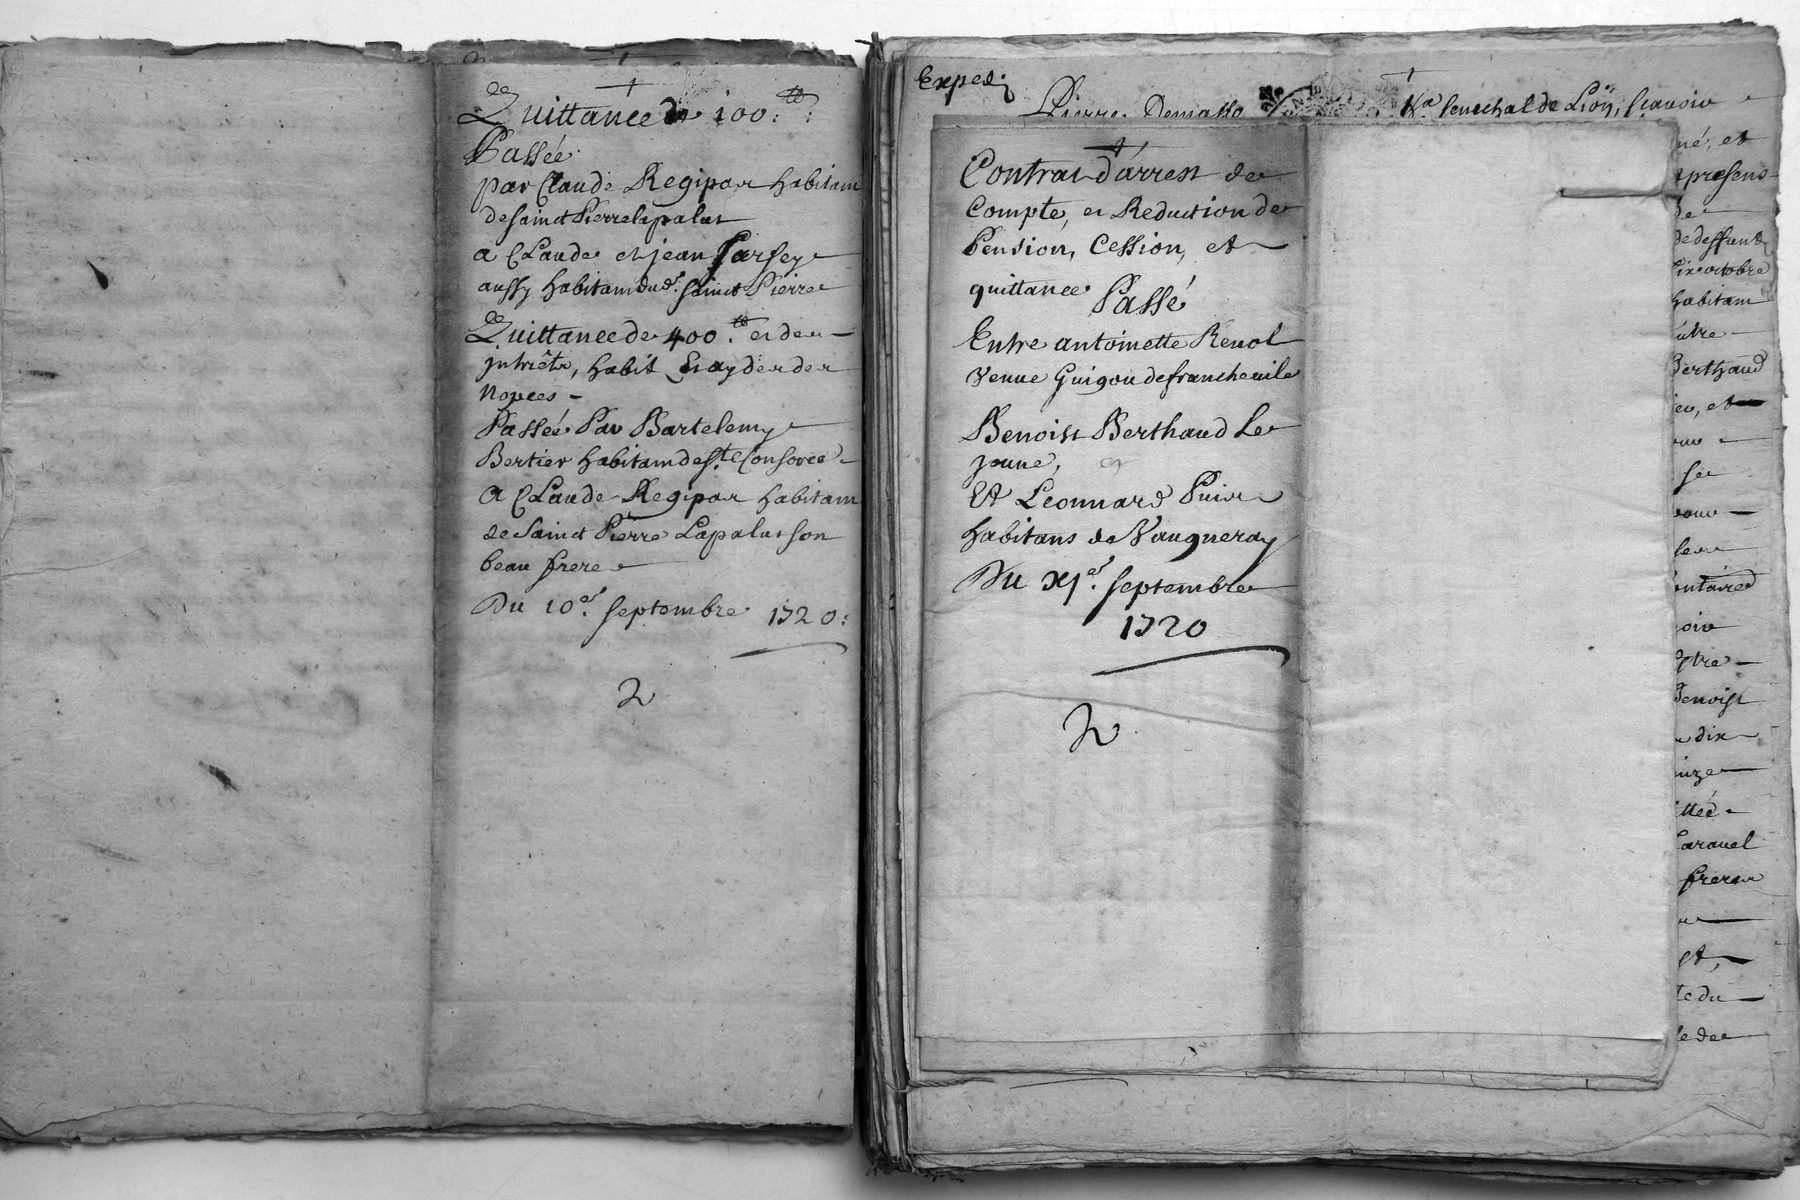 Quittance de 100.tt:
Passée
par Claude Regipas habitam
de Sainct Pierrelapalus
a Claude et jean
aussy habitam dud.t Sainct Pierre
Quittance de 400.tt et des
jntrêts, habit de
Nopces
Passée Par Bartelemy
Bertier habitam de S.te Consorce
a Claude Regipas habitam
de Sainct Pierre Lapalus son
beau frere
Du 10.e Septembre 1720:
2
Exped.
Pierre Demasso Sa Senechal de Lion, Scavoir
Contrat d'arrest de
Compte, et Reduction de
Pension, Cession, et
quittance Passé
Entre antoinette Revol
Veuue Guigou de francheuile
Benoist Berthaud Le
jeune,
Et Leonnard
habitans de Vaugneray
Du XI.e Septembre
1720
2
né, et
presens
de
de deffunt
octobre
habitam
utre
Berthaud
et
se
oir
Benoist
dix
ttée
Caravel
freres
et,
te du
le de